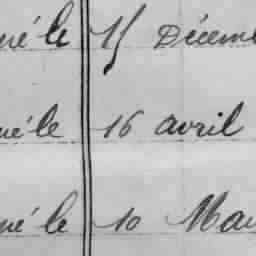 né le 15 Décem
né le 16 avril
né le 10 Ma